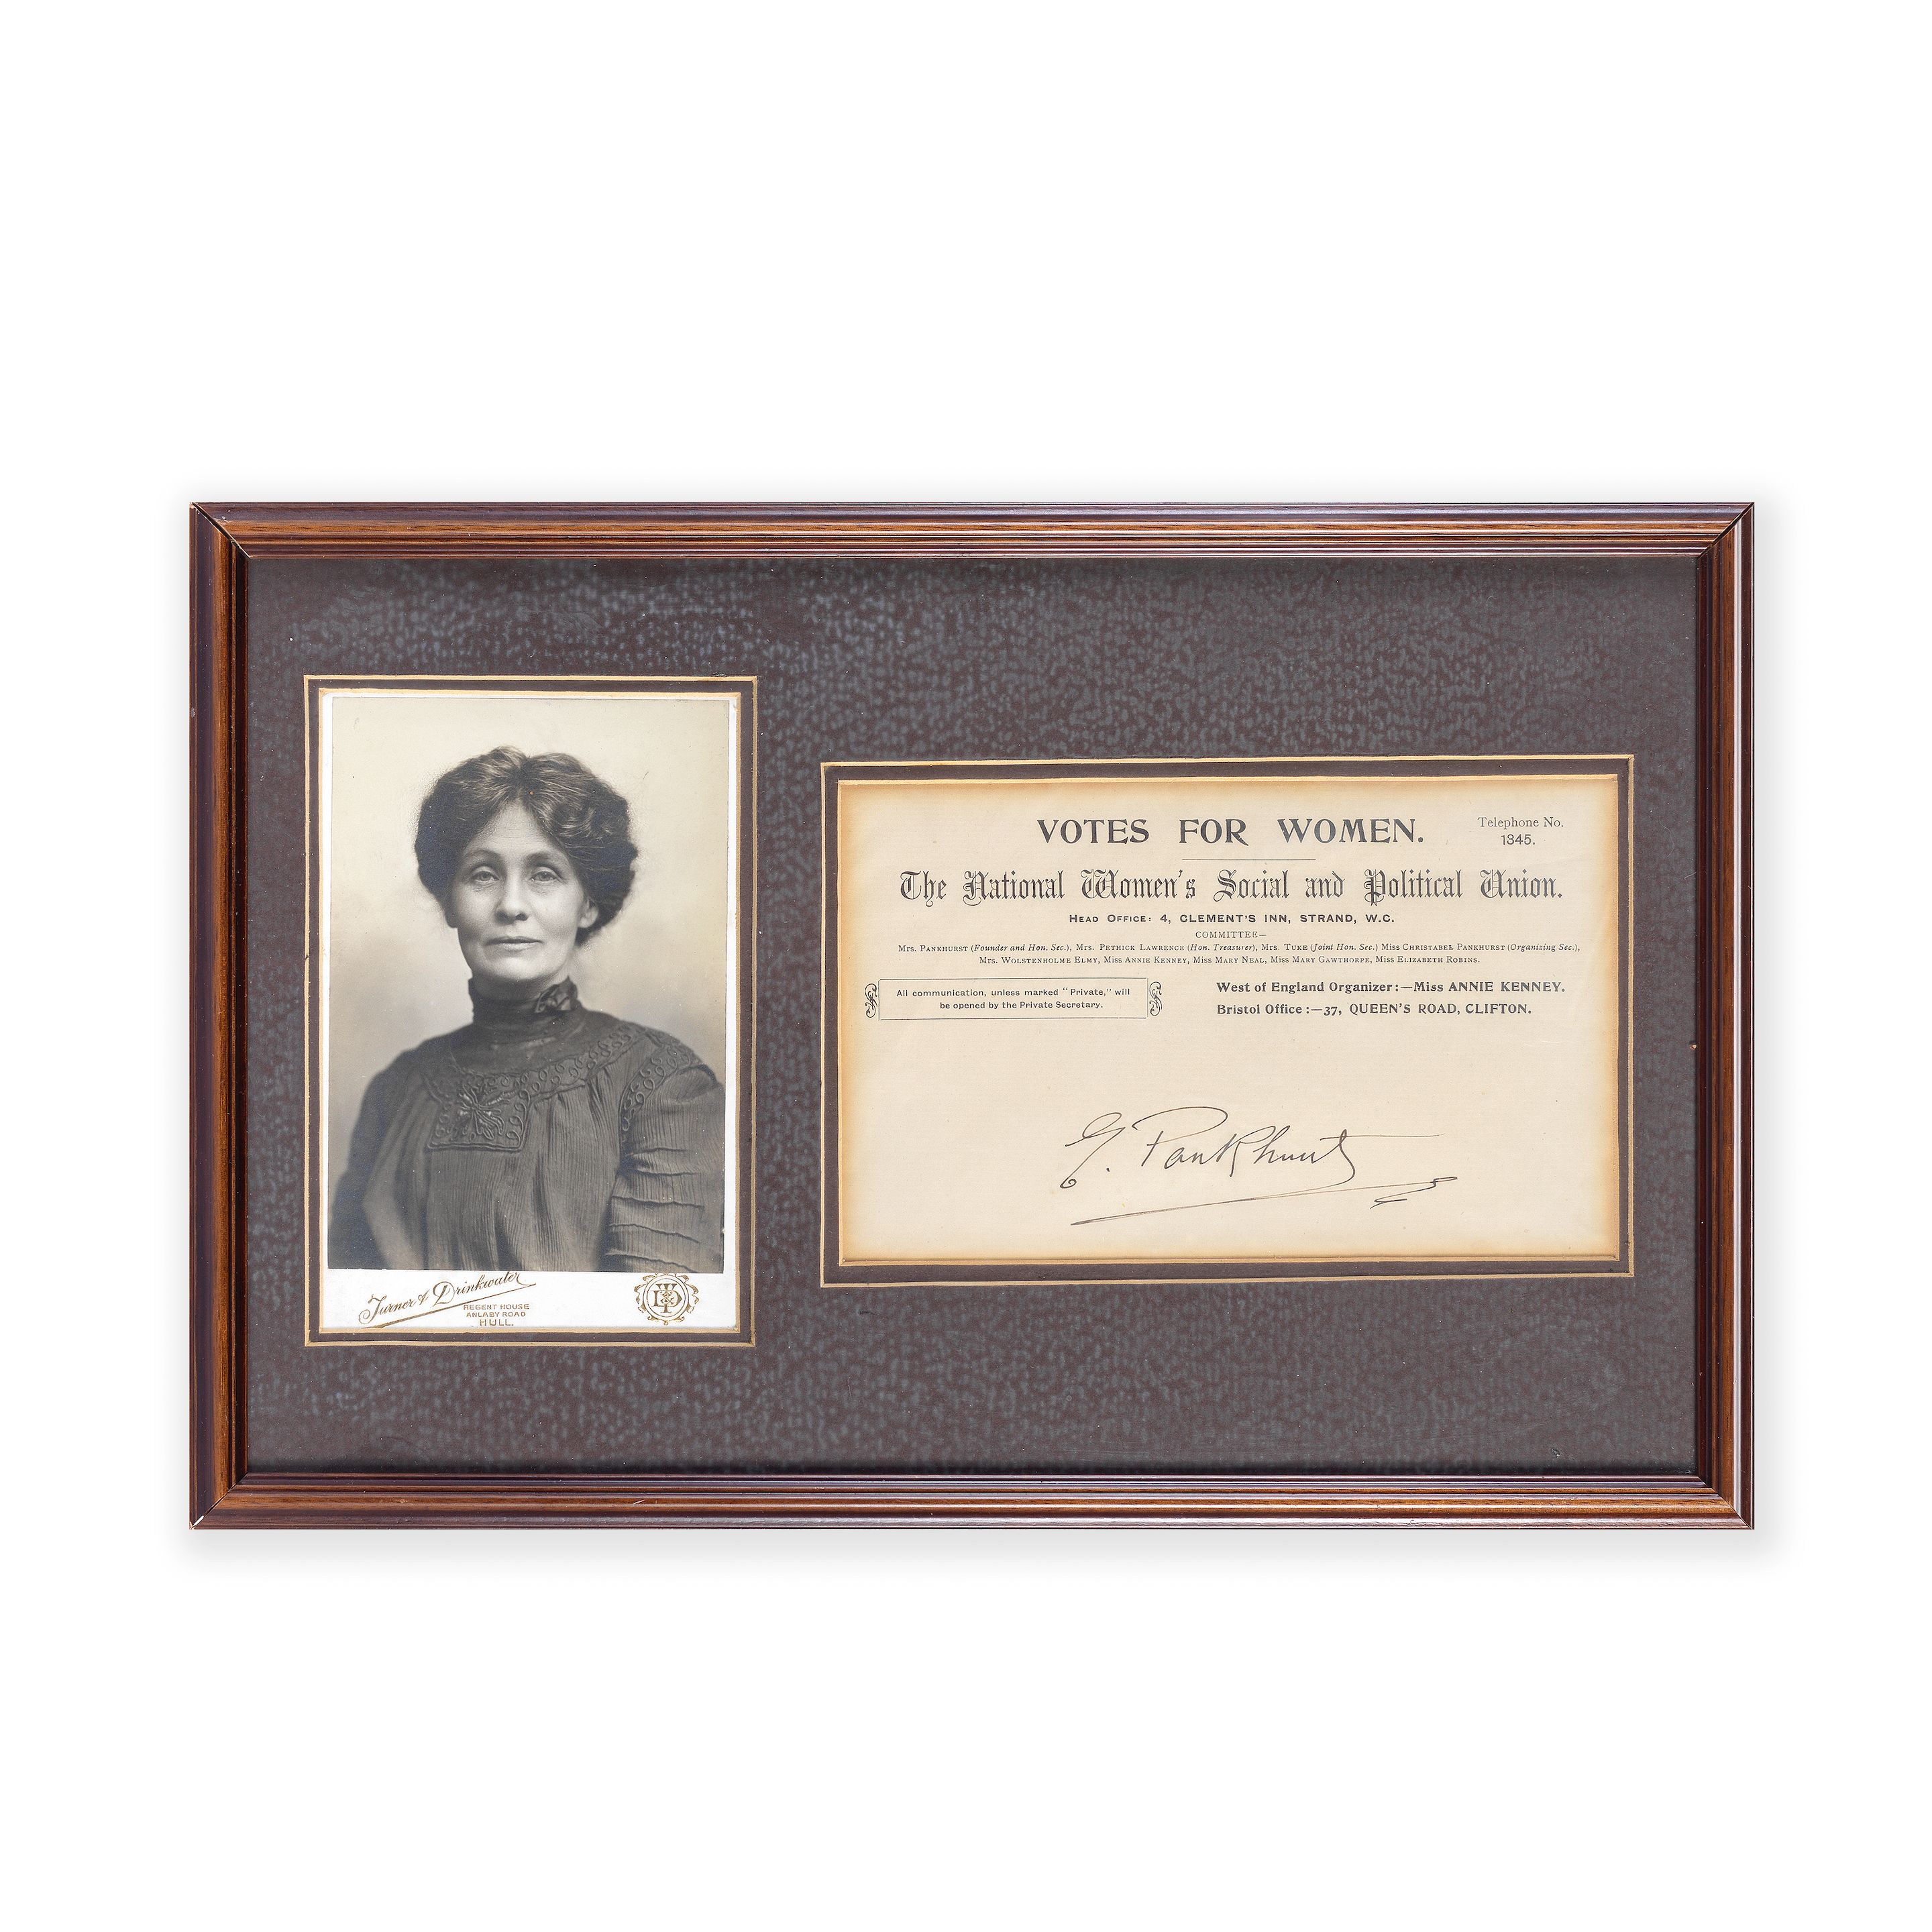 Turner & Drinkwater
REGENT HOUSE
ANLABY ROAD
HULL.
VOTES FOR WOMEN.
Telephone No.
1345.
The National Women's Social and Political Union.
HEAD OFFICE: 4, CLEMENT'S INN, STRAND, W.C.
COMMITTEE—
Mrs. PANKHURST (Founder and Hon. Sec.), Mrs. PETHICK LAWRENCE (Hon. Treasurer), Mrs. TUKE (Joint Hon. Sec.) Miss CHRISTABEL PANKHURST (Organizing Sec.),
Mrs. WOLSTENHOLME ELMY, Miss ANNIE KENNEY, Miss MARY NEAL, Miss MARY GAWTHORPE, Miss ELIZABETH ROBINS.
All communication, unless marked "Private," will
be opened by the Private Secretary.
West of England Organizer:—Miss ANNIE KENNEY.
Bristol Office:—37, QUEEN'S ROAD, CLIFTON.
E. Pankhurst